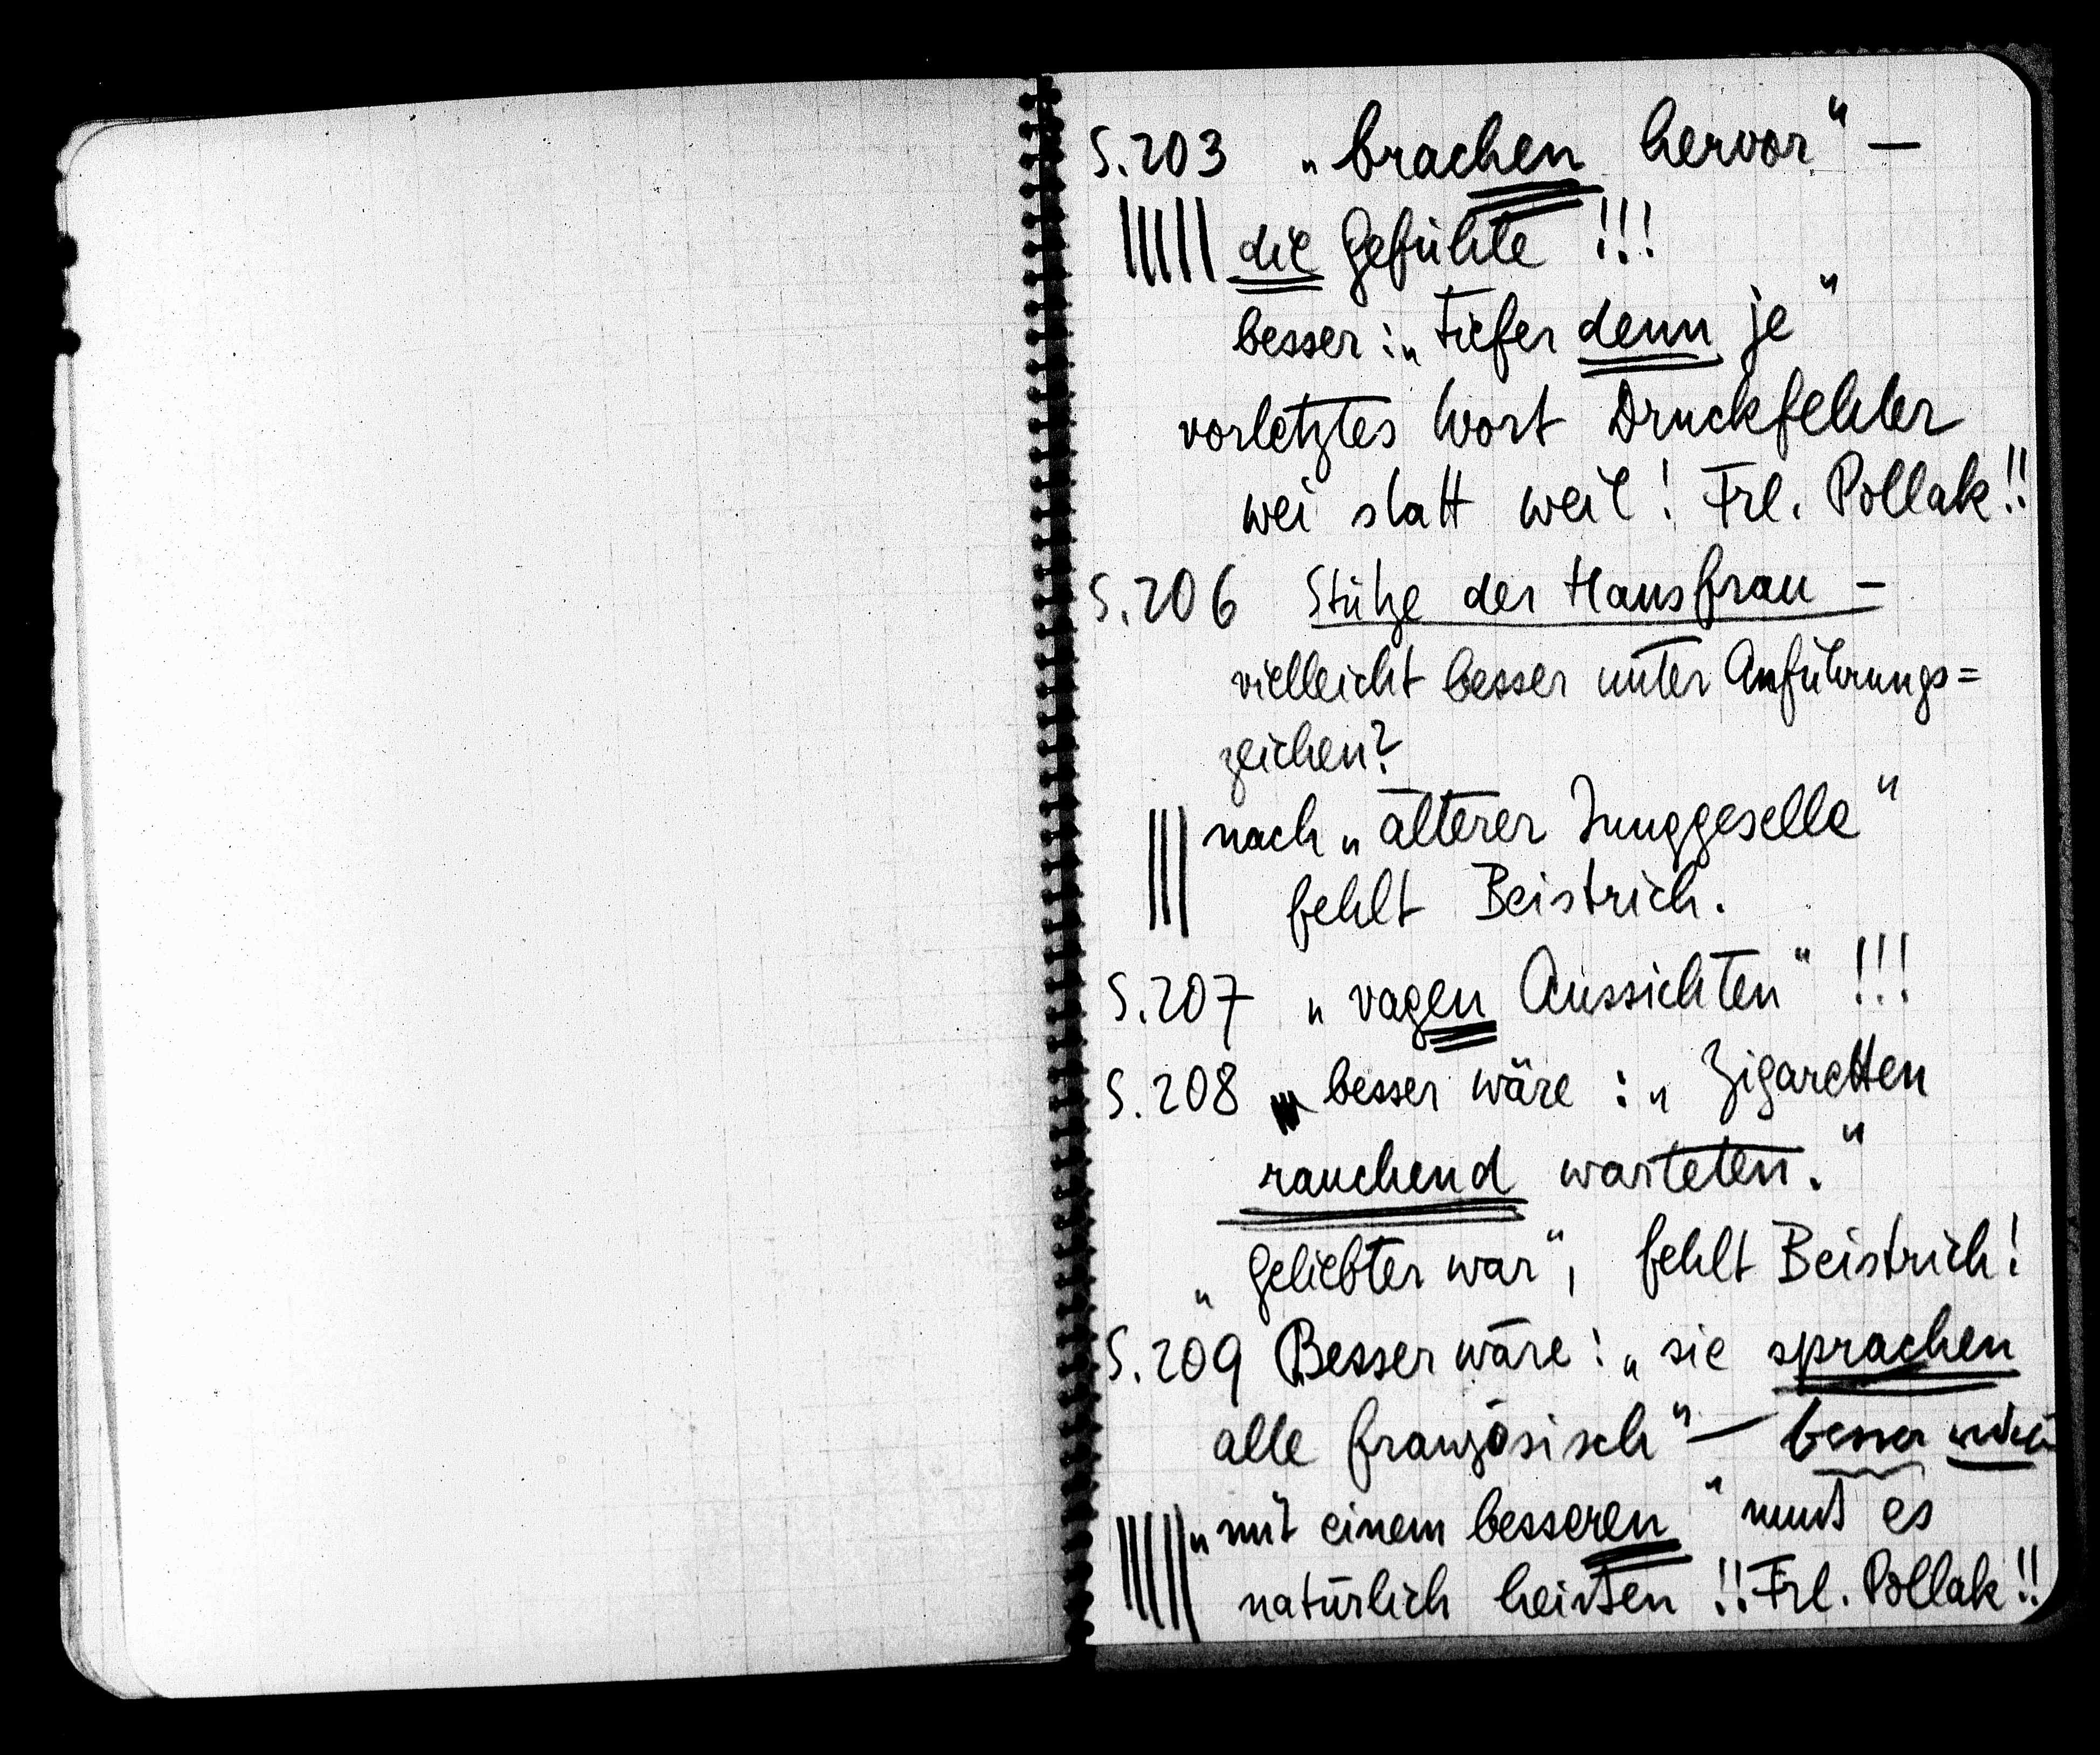 S.203 „brachen hervor“ —
die Gefühle !!!
besser: „Tiefer denn je“
vorletztes Wort Druckfehler
wei statt weil! Frl. Pollak!!
S.206 Stütze der Hausfrau —
vielleicht besser unter Anführungs=
zeichen?
nach „älterer Junggeselle“
fehlt Beistrich.
S.207 „vagen Aussichten“ !!!
S.208 besser wäre: „Zigaretten
rauchend warteten.“
„Geliebter war“, fehlt Beistrich!
S.209 Besser wäre: „sie sprachen
alle französisch“ — besser
„mit einem besseren“ muß es
natürlich heißen !! Frl. Pollak!!